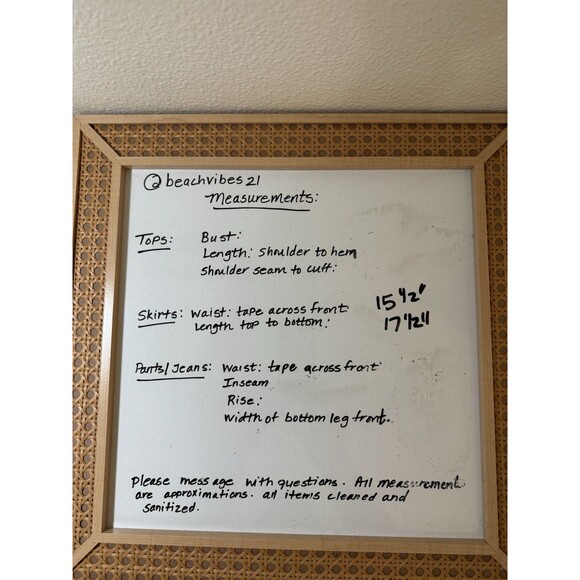 @beachvibes21
Measurements:
Tops: Bust:
Length: Shoulder to hem
Shoulder seam to cuff:
Skirts: Waist: tape across front 15 1/2"
Length top to bottom: 17 1/2"
Pants/Jeans: Waist: tape across front
Inseam
Rise:
Width of bottom leg front.
Please message with questions. All measurements
are approximations. all items cleaned and
sanitized.